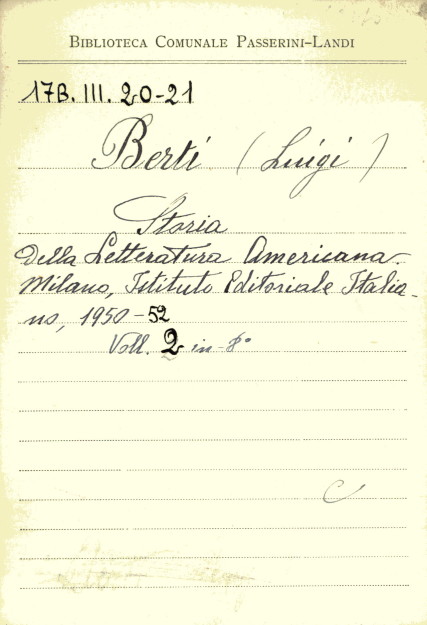 BIBLIOTECA COMUNALE PASSERINI-LANDI
17B. III. 20-21
Berti (Luigi)
Storia
della Letteratura Americana.
Milano, Istituto Editoriale Italia-
no, 1950-52
Voll. 2 in-8°
C